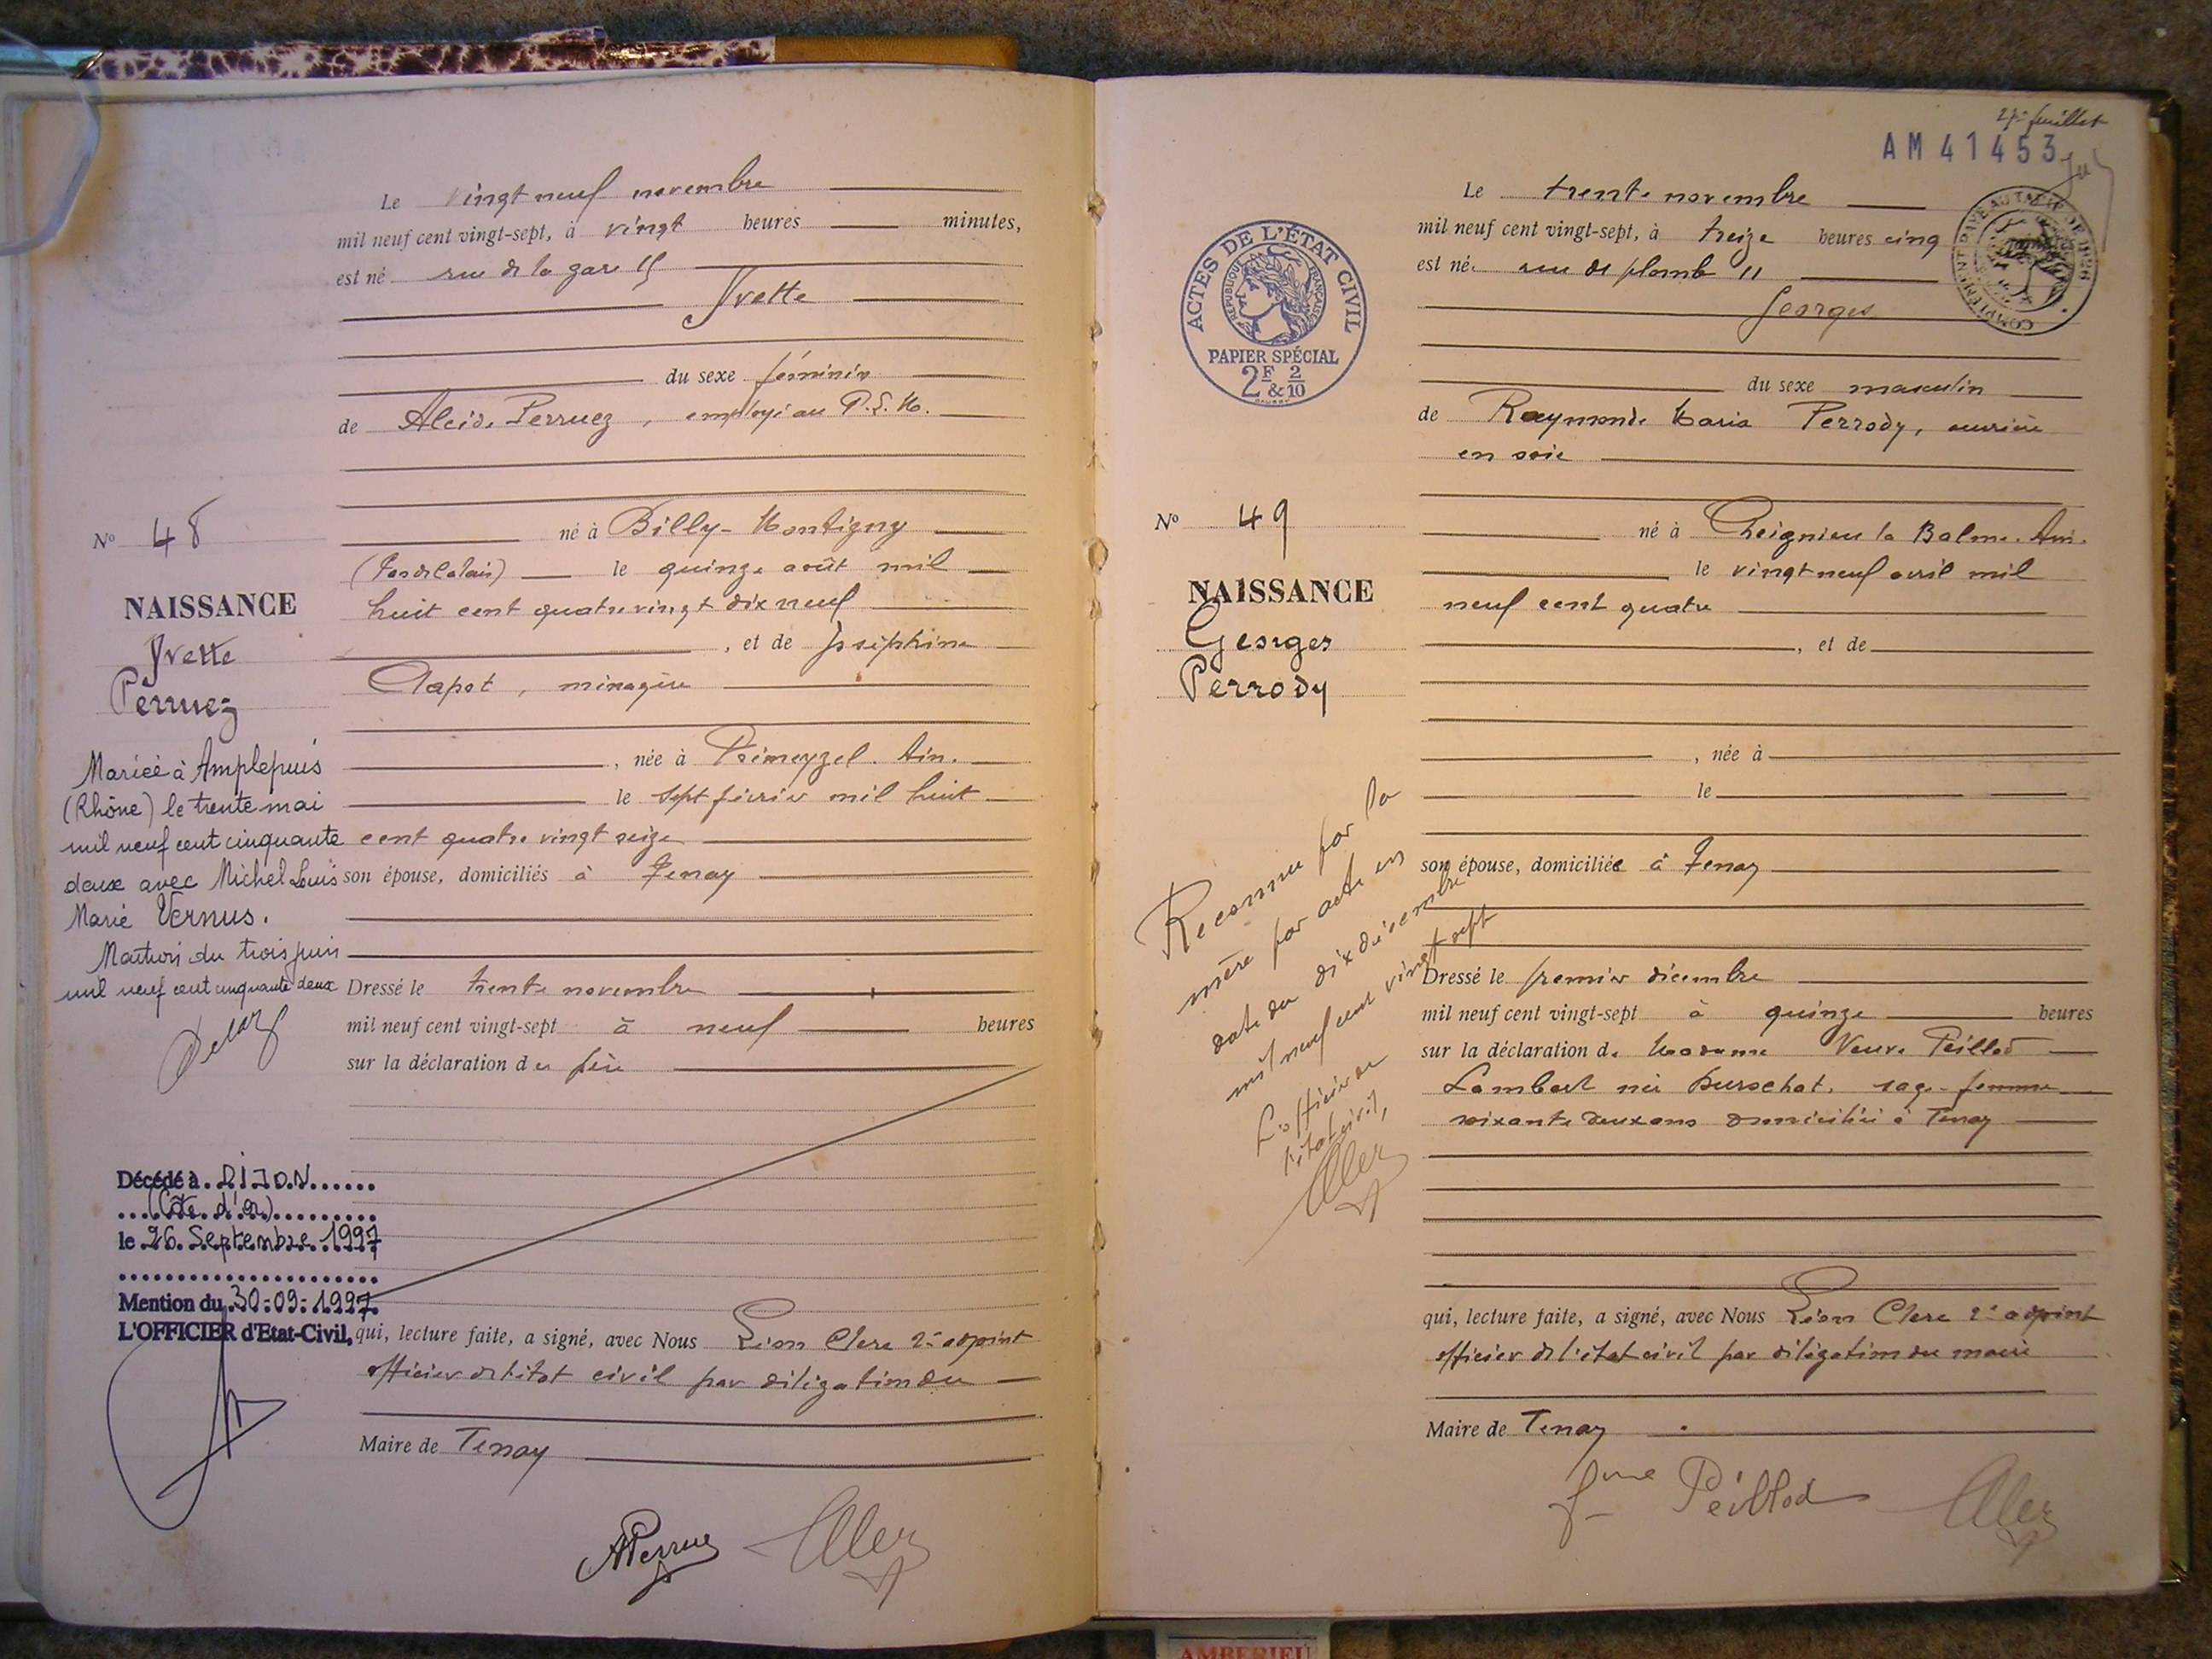 Le vingt neuf novembre
mil neuf cent vingt-sept, à vingt heures minutes,
est né rue de la gare 15
Yvette
du sexe féminin
de Alcide Perruez, employé au P. L. M.
né à Billy-Montigny
(Pas de Calais) le quinze août mil
huit cent quatre vingt dix neuf
, et de Joséphine
Clapot, ménagère
, née à Prémeyzel. Ain.
le sept février mil huit
cent quatre vingt seize
son épouse, domiciliés à Tenay
Dressé le trente novembre
mil neuf cent vingt-sept à neuf heures
sur la déclaration du père
qui, lecture faite, a signé, avec Nous Léon Clerc 2e adjoint
officier de l'état civil par délégation du
Maire de Tenay
APerruez
No 48
NAISSANCE
Yvette
Perruez
Mariée à Amplepuis
(Rhône) le trente mai
mil neuf cent cinquante
deux avec Michel Louis
Marie Vernus.
Mention du trois juin
mil neuf cent cinquante deux
Décédé à DIJON
(Côte d'Or)
le 26 Septembre 1997
Mention du 30-09-1997
L'OFFICIER d'Etat-Civil,
27e feuillet
AM 41453
Le trente novembre
mil neuf cent vingt-sept, à treize heures cinq
est né rue de plomb 11
Georges
du sexe masculin
de Raymonde Maria Perrody, ouvrière
en soie
né à Cheignieu la Balme. Ain.
le vingt neuf avril mil
neuf cent quatre
, et de
, née à
le
son épouse, domiciliée à Tenay
Dressé le premier décembre
mil neuf cent vingt-sept à quinze heures
sur la déclaration de Madame Veuve Peillod
Lambert née sage-femme
soixante deux ans domiciliée à Tenay
qui, lecture faite, a signé, avec Nous Léon Clerc 2e adjoint
officier de l'état civil par délégation du maire
Maire de Tenay
fme Peillod
ACTES DE L'ÉTAT CIVIL
RÉPUBLIQUE FRANÇAISE
PAPIER SPÉCIAL
2F & 2/10
No 49
NAISSANCE
Georges
Perrody
Reconnu par la
mère par acte en
date du dix décembre
mil neuf cent vingt sept
L'officier de
l'état civil,
AMBERIEU